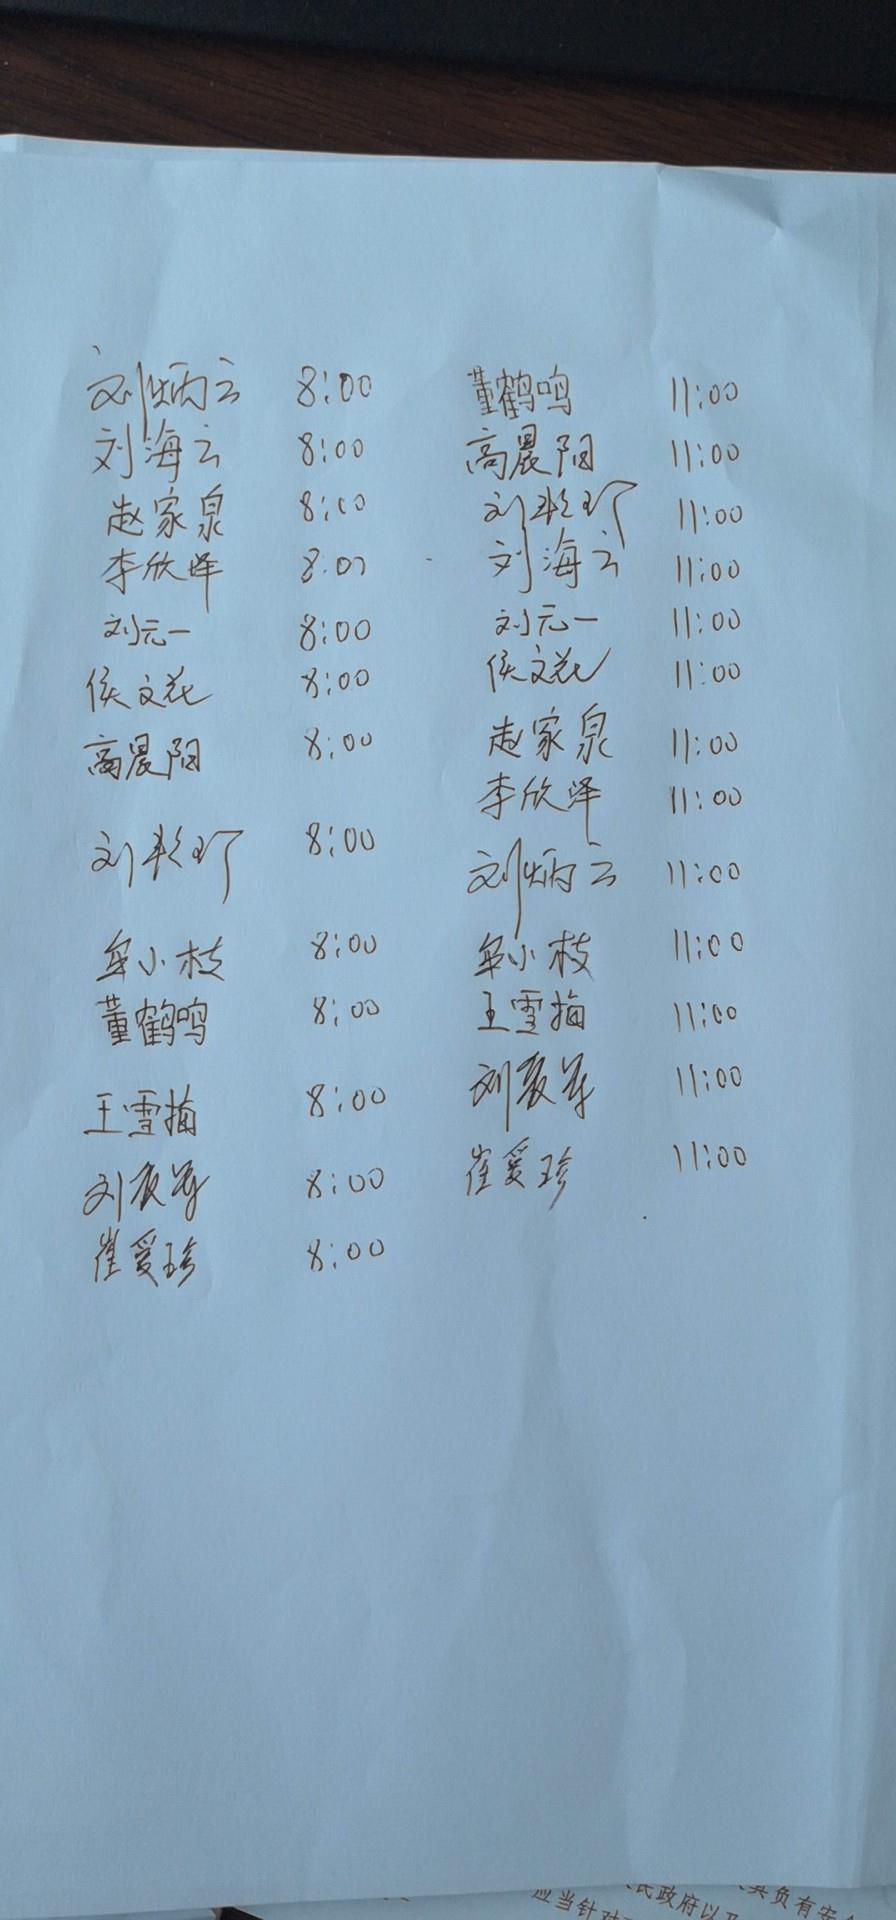 刘炳云 8:00
刘海云 8:00
赵家泉 8:00
李欣泽 8:00
刘元一 8:00
侯文花 8:00
高晨阳 8:00
刘 8:00
牟小枝 8:00
董鹤鸣 8:00
王雪梅 8:00
刘 8:00
崔爱珍 8:00
董鹤鸣 11:00
高晨阳 11:00
刘 11:00
刘海云 11:00
刘元一 11:00
侯文花 11:00
赵家泉 11:00
李欣泽 11:00
刘炳云 11:00
牟小枝 11:00
王雪梅 11:00
刘 11:00
崔爱珍 11:00
民政府以及
其负有安全
应当针对